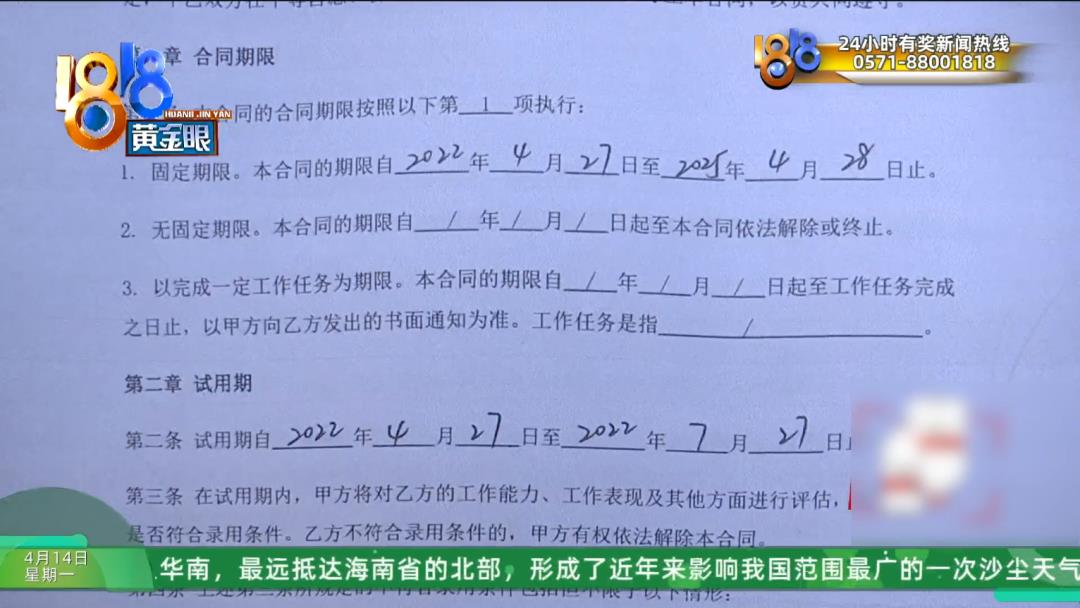 1818
HUANG JIN YAN
黄金眼
24小时有奖新闻热线
0571-88001818
章 合同期限
本合同的合同期限按照以下第 1 项执行：
1. 固定期限。本合同的期限自 2022 年 4 月 27 日至 2025 年 4 月 28 日止。
2. 无固定期限。本合同的期限自 / 年 / 月 / 日起至本合同依法解除或终止。
3. 以完成一定工作任务为期限。本合同的期限自 / 年 / 月 / 日起至工作任务完成
之日止，以甲方向乙方发出的书面通知为准。工作任务是指 / 。
第二章 试用期
第二条 试用期自 2022 年 4 月 27 日至 2022 年 7 月 27 日
第三条 在试用期内，甲方将对乙方的工作能力、工作表现及其他方面进行评估，
是否符合录用条件。乙方不符合录用条件的，甲方有权依法解除本合同。
4月14日
星期一
华南，最远抵达海南省的北部，形成了近年来影响我国范围最广的一次沙尘天气